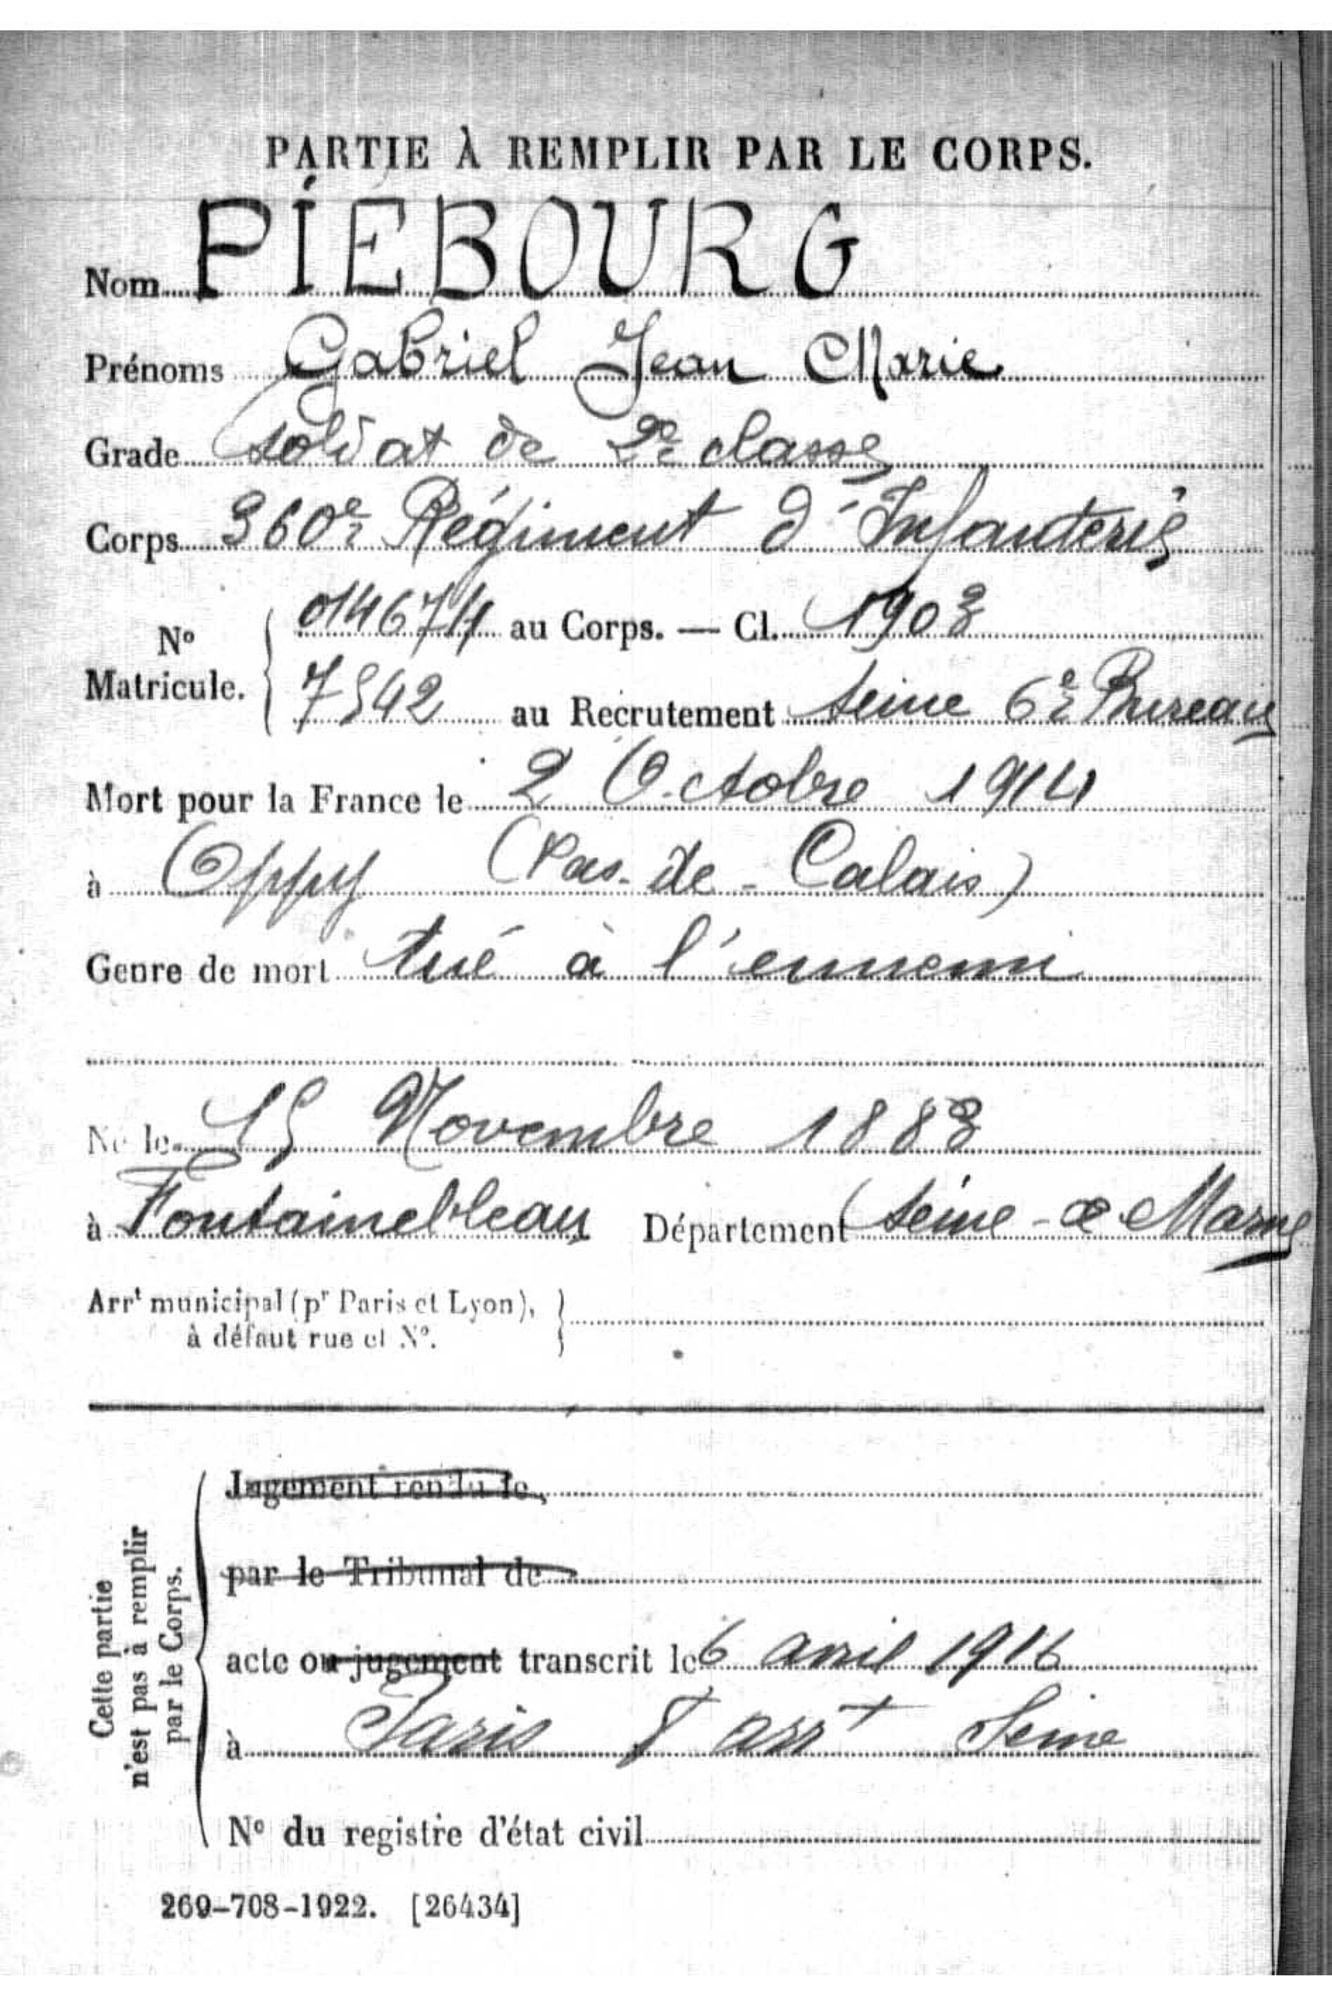 PARTIE À REMPLIR PAR LE CORPS.
Nom PIÉBOURG
Prénoms Gabriel Jean Marie
Grade Soldat de 2e classe
Corps 360e Régiment d'Infanterie
No Matricule. 014674 au Corps. — Cl. 1903
7542 au Recrutement Seine 6e Bureau
Mort pour la France le 2 Octobre 1914
à Oppy (Pas-de-Calais)
Genre de mort tué à l'ennemi
Né le 15 Novembre 1883
à Fontainebleau Département Seine-&-Marne
Arrt municipal (pr Paris et Lyon),
à défaut rue et N°.
Cette partie n'est pas à remplir par le Corps.
Jugement rendu le
par le Tribunal de
acte ou jugement transcrit le 6 avril 1916
à Paris arrt Seine
N° du registre d'état civil
269-708-1922. [26434]